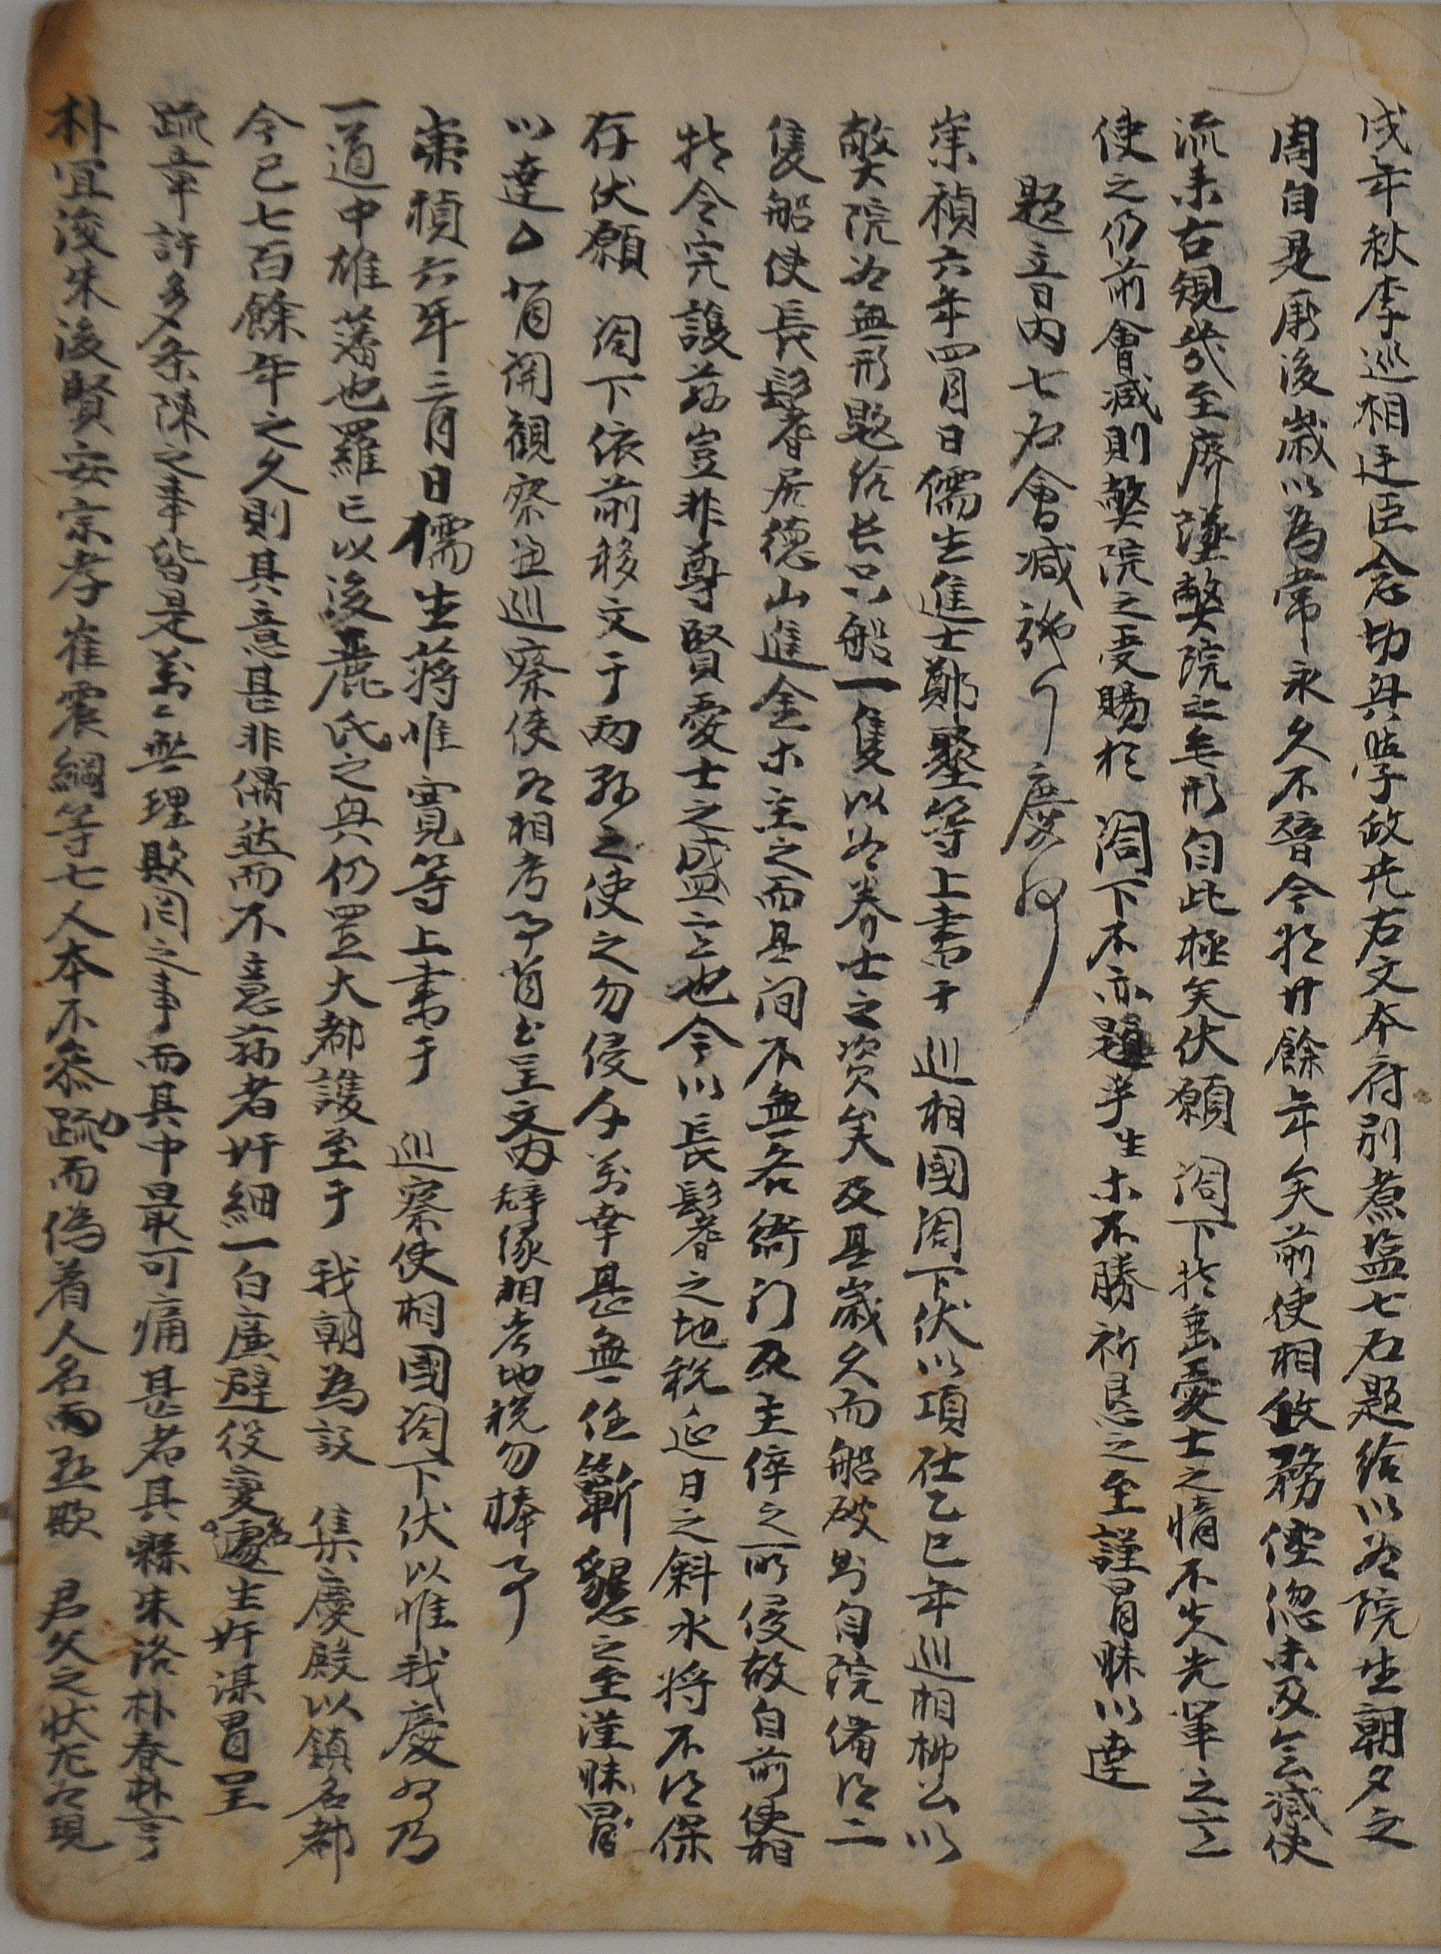 戌年秋李巡相廷臣念切興學敀先右文本府別煮盐七石題給以为院生朝夕之
周自是厥後歲以為常永久不替今将廿餘年矣前使相敀務倥傯未及会減使
流来古規幾至廢墜弊院之無形自此極矣伏願 閤下特垂愛士之情不失先軍之意
使之仍前會減則弊院之受賜於 閤下不亦題乎生等不勝祈恳之至謹冒昧以達
題音內七石會減 向事 慶州
崇禎六年四月日儒生進士鄭䥐等上書于 巡相國閤下伏以項在乙巳年巡相柳公以
弊院为無形題給长只船一隻以为养士之资矣及其歲久而船破則自院備得二
隻船使長鬐居德山進金等主之而其间不無各衙门及主倅之所侵故自前使相
特令完護玆豈非尊賢愛士之盛意也今以長鬐之地稅近日之斜水将不得保
存伏願 閤下依前移文于两形之使之勿侵千万幸甚無任蘄懇之至謹昧冒
以達 背関觀察道巡察使为相考事首書呈文內辞缘相考地税勿捧事
崇禎六年三月日儒生蒋惟寬等上書于 巡察使相國閤下伏以惟我慶州乃
一道中雄藩也羅亡以後麗氏之興仍置大都護至于 我朝為設 集慶殿以鎮名都
今已七百餘年之久則其意甚非偶然而不意玆者奸細一白廣避役憂邊生奸謀冒呈
疏章許多条陳之事皆是萬々無理欺罔之事而其中最可痛甚者其縣朱洛朴春朴亨
朴宜浚朱浚賢安宗孝崔震綱等七人本不叅疏而偽着人名而亟欺 君父之状尤为現